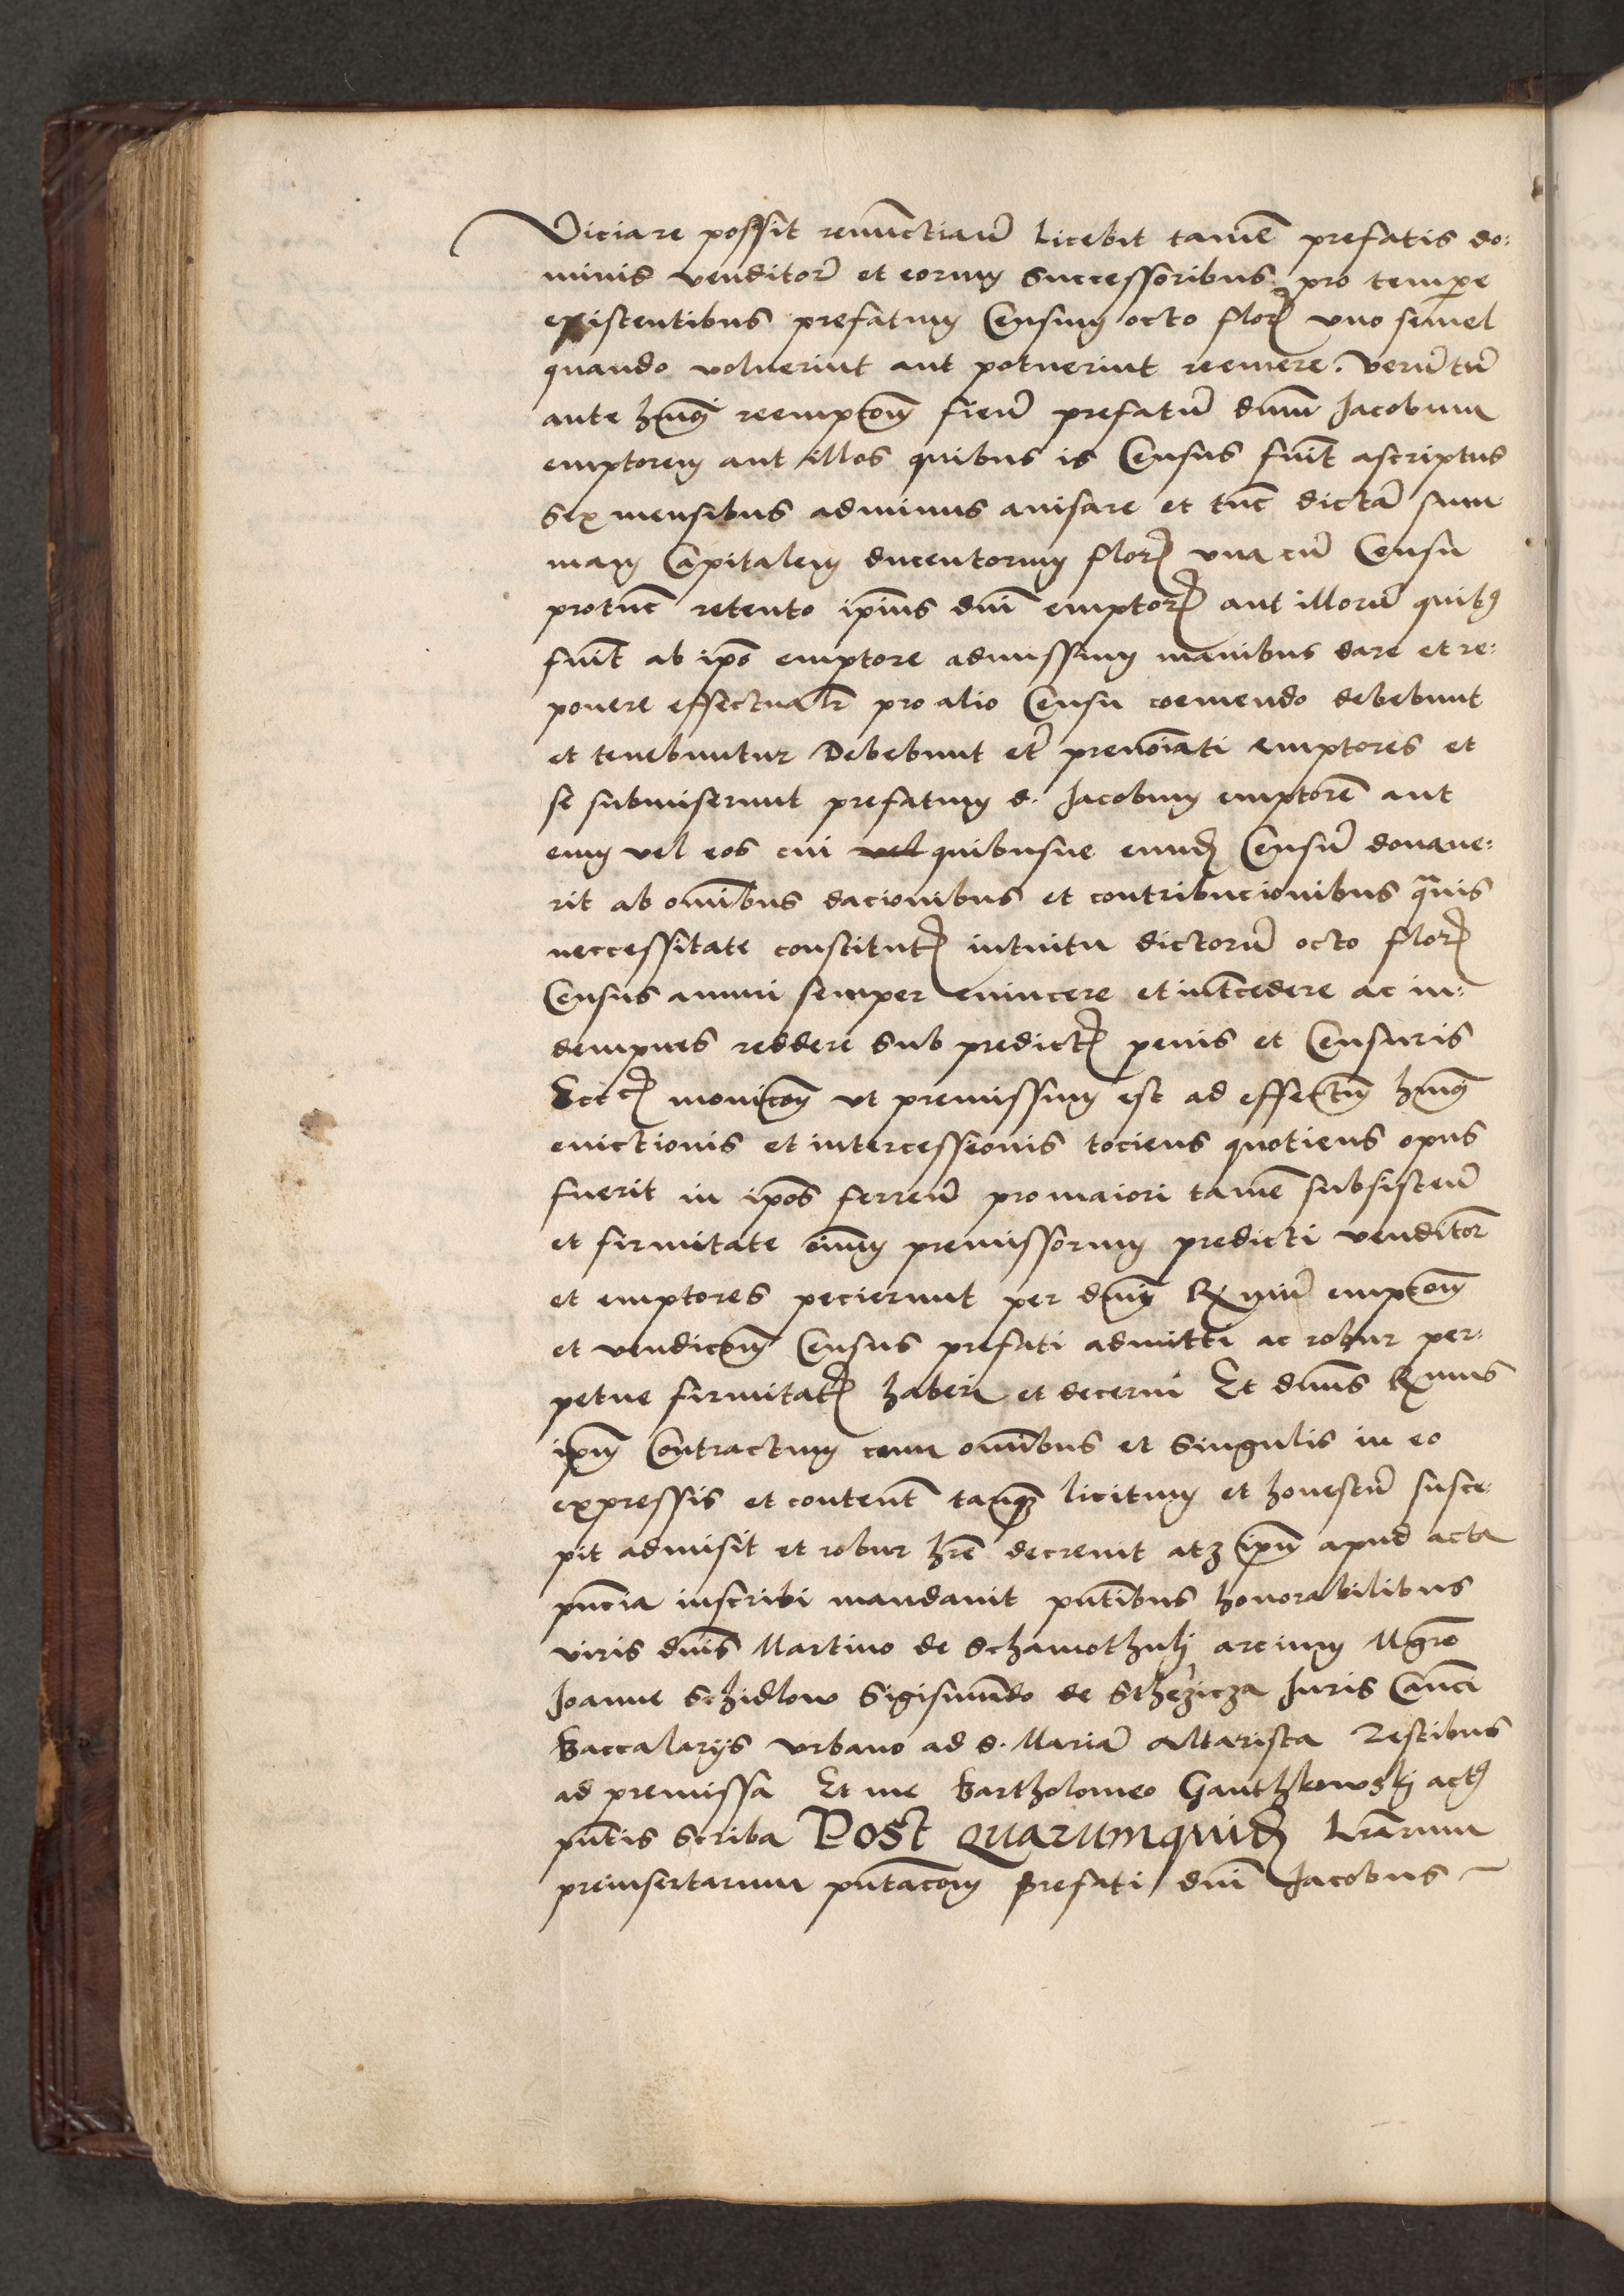 Viciare possit renunctiaũ Licebit tamẽ prefatis do:
minis venditor̃ et eorum Successoribus pro tempe
existentibus prefatum Censum octo flor̃ vno semel
quando voluerint aut potuerint reemere. Verũtũ
ante hm̃oi reemptom̃ fieñ prefatũ dnm̃ Jacobum
emptorem aut illos quibus is Census fuit̃ ascriptus
Sex mensibus adminus auisare et tũc dictã sum
mam Capitalem ducentorum flor̃ vna cũ Censu
protũc retento ip̃ius dnĩ emptor̃ aut illorũ quib9
fuit̃ ab ip̃o emptore admissum manibus dare et re:
ponere effectualr̃ pro alio Censu coemendo debebunt
et tenebuntur Debebunt et̃ prenoĩati emptores et
se submiserunt prefatum d. Jacobum emptorẽ aut
eum vel eos cui vel quibusue eund̃ Censũ donaue:
rit ab om̃ibus dacionibus et contribucionibus quãuis
neccessitate constitut̃ intuitu dictorũ octo flor̃
Census annui semper euincere et int̃cedere ac in:
dempnes reddere Sub predict̃ penis et Censuris
Ecc̃ monicom̃ vt premissum est ad effectum hm̃oi
euictionis et intercessionis tociens quotiens opus
fuerit in ip̃os ferreñ pro maiori tamẽ subsisteñ
et firmitate oĩum premissorum predicti venditor̃
et emptores pecierunt per dnm̃ Rmũ emptom̃
et vendicom̃ Census prefati admitti ac robur per:
petue firmitat̃ haberi et decerni Et dnũs Rmus
ip̃m Contractum cum om̃ibus et Singulis in eo
expressis et content̃ tanq̃ licitum et honestũ susce
pit admisit et robur hr̃e decreuit atq3 ip̃m apud acta
pñcia inscribi mandauit pñtibus honorabilibus
viris dnĩs Martino de Schamothulj arcium Mgr̃o
Joanne Schidlow Sigismundo de Sthezicza Juris Cañci
Baccalarijs Vrbano ad S. Mariã Altarista Testibus
ad premissa Et me Bartholomeo Ganthkowskj act9
pñtis Scriba Post Quarumquid̃ Lr̃arum
preinsertarum pñtacom̃ prefati dnĩ Jacobus